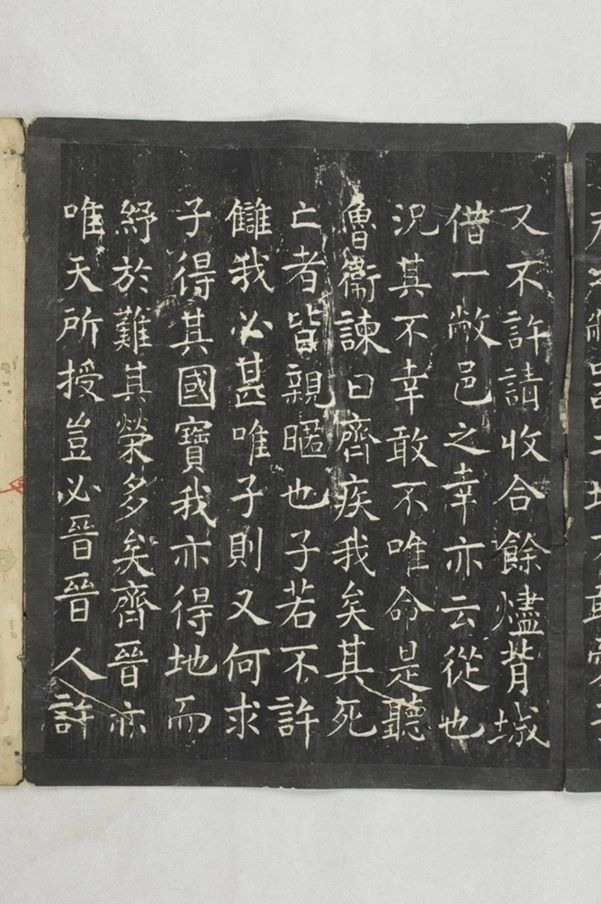 又不許請收合餘燼背城
借一敝邑之幸亦云從也
況其不幸敢不唯命是聽
魯衛諫曰齊疾我矣其死
亡者皆親暱也子若不許
讎我必甚唯子則又何求
子得其國寶我亦得地而
紓於難其榮多矣齊晉亦
唯天所授豈必晉晉人許